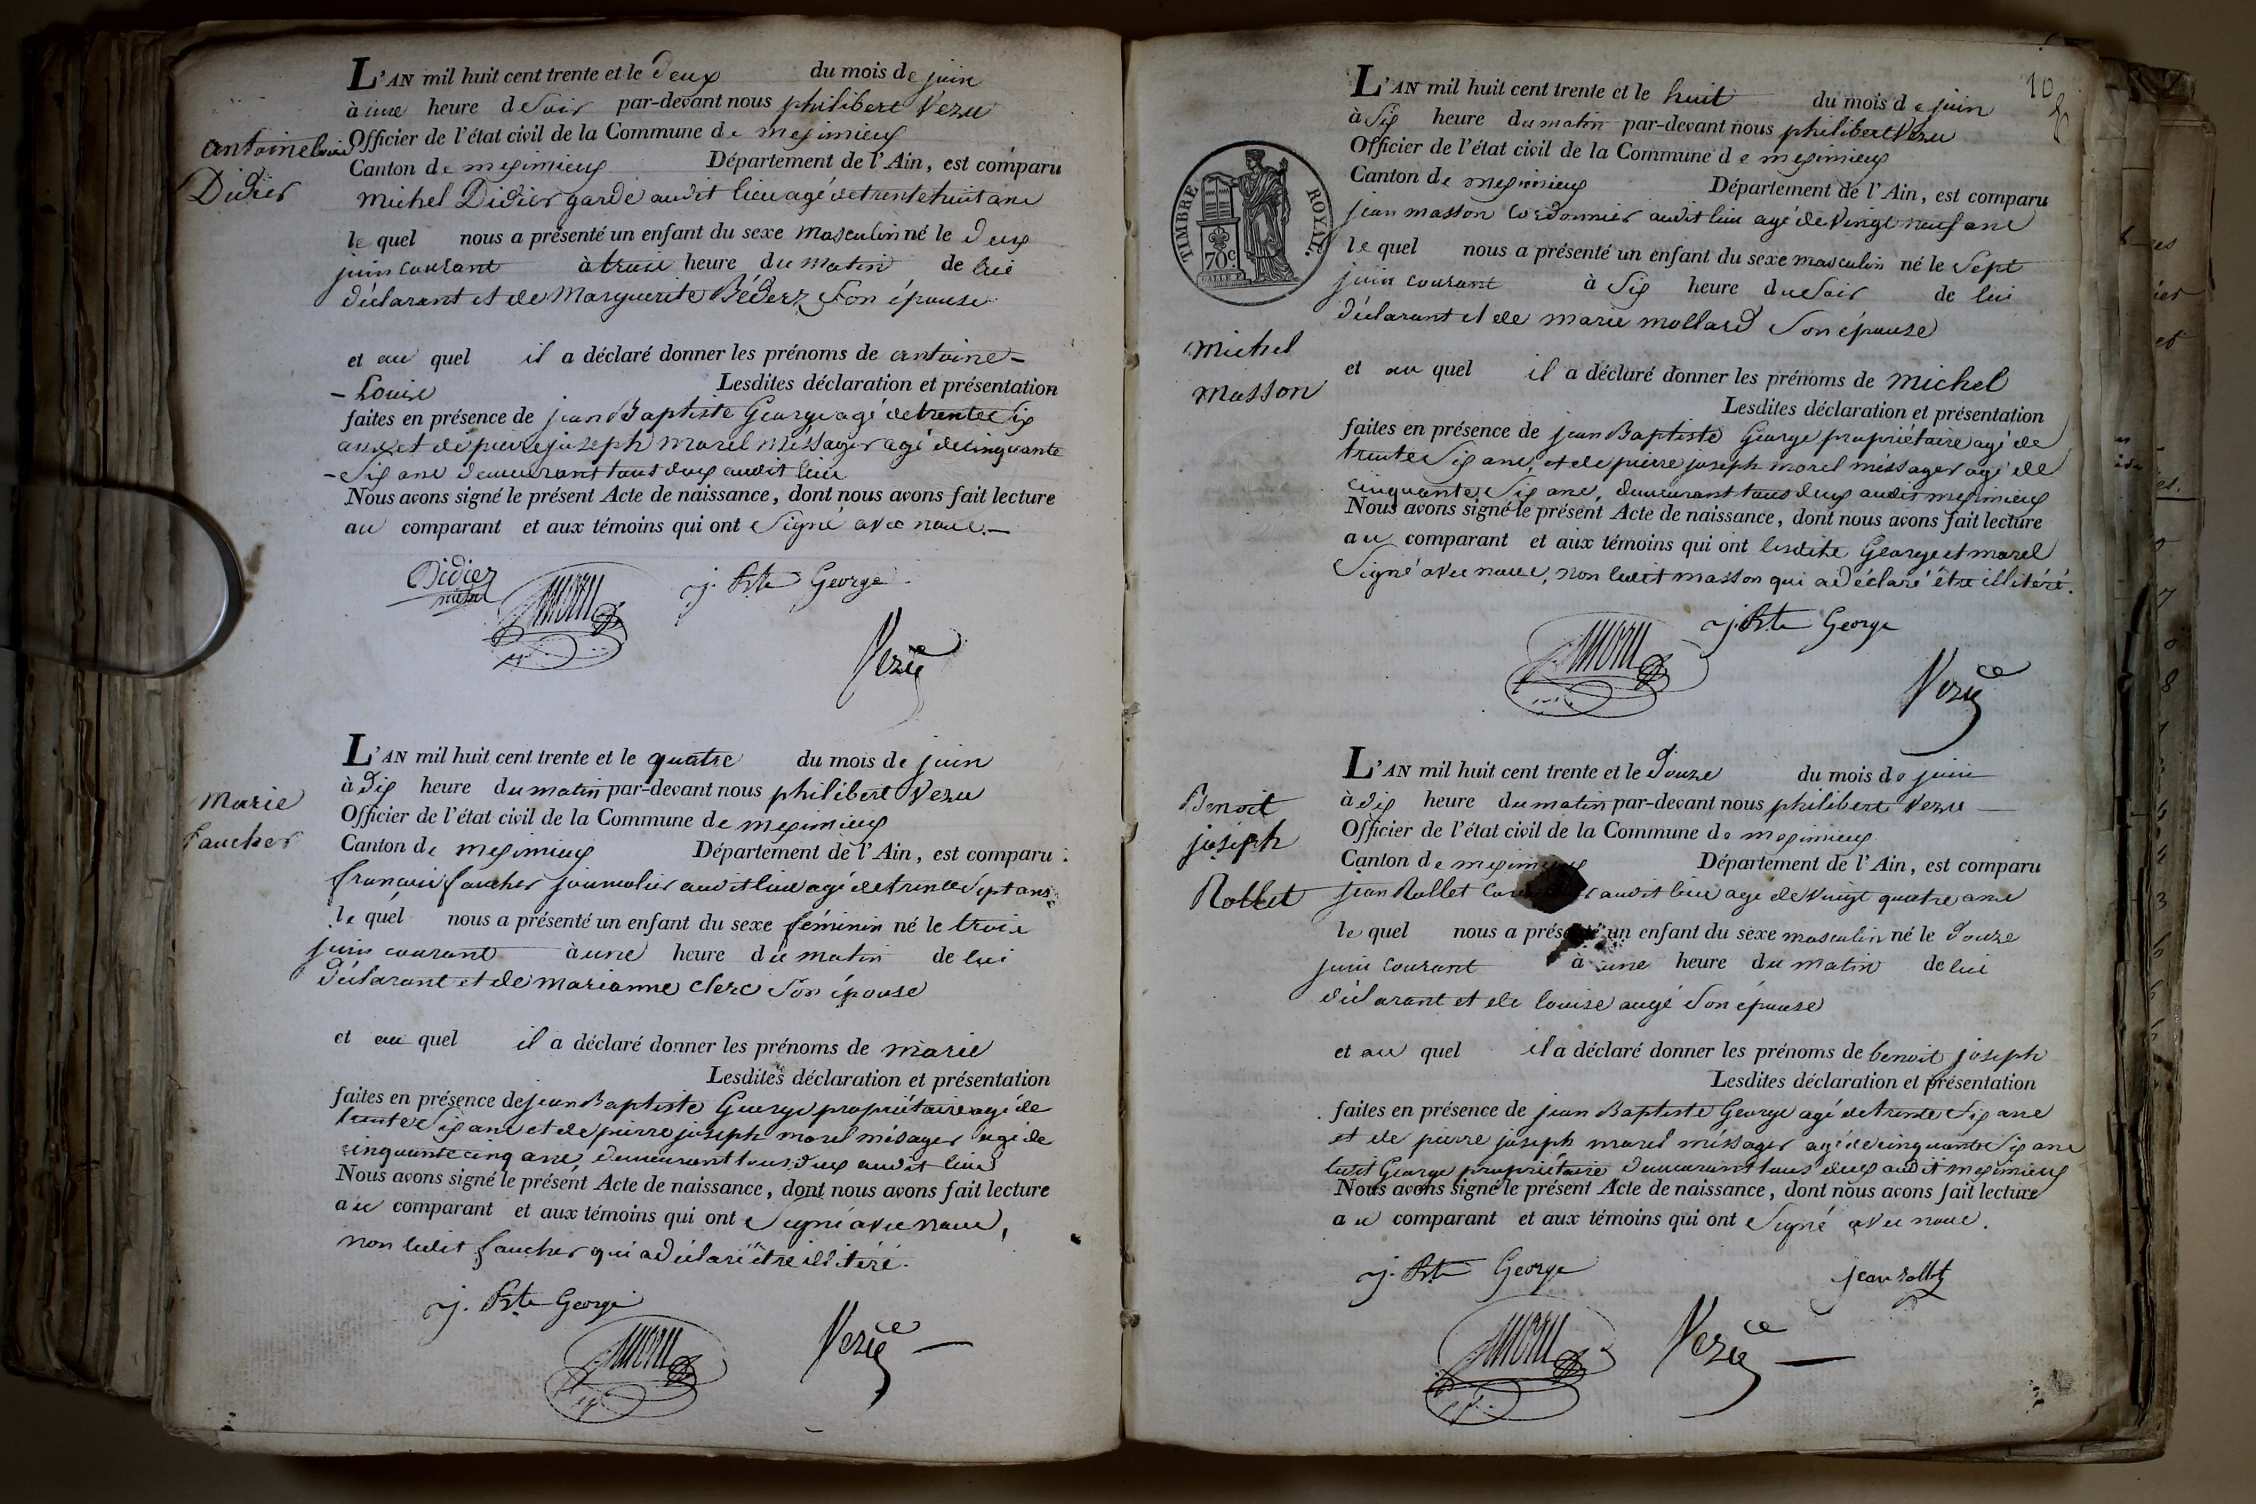 L'AN mil huit cent trente et le deux du mois de juin
à une heure de Soir par-devant nous philibert Vezu
Officier de l'état civil de la Commune de meximieux
Canton de meximieux Département de l'Ain, est comparu
michel Didier garde audit lieu agé de trente huit ans
le quel nous a présenté un enfant du sexe masculin né le deux
juin courant à heure du matin de lui
déclarant et de Marguerite Béderz Son épouse
et au quel il a déclaré donner les prénoms de antoine-
-Louis Lesdites déclaration et présentation
faites en présence de jean Baptiste George agé de trente Six
ans et de pierre joseph morel méssager agé de cinquante
-Six ans demeurant tous deux audit lieu
Nous avons signé le présent Acte de naissance, dont nous avons fait lecture
au comparant et aux témoins qui ont Signé avec nous.-
antoine Louis
Didier
Didier
michel
j. Bte George
Vezu
L'AN mil huit cent trente et le quatre du mois de juin
à dix heure du matin par-devant nous philibert Vezu
Officier de l'état civil de la Commune de meximieux
Canton de meximieux Département de l'Ain, est comparu
françois faucher journalier audit lieu agé de trente Sept ans
le quel nous a présenté un enfant du sexe féminin né le trois
juin courant à une heure du matin de lui
déclarant et de marianne clerc Son épouse
et au quel il a déclaré donner les prénoms de marie
Lesdites déclaration et présentation
faites en présence de jean Baptiste George propriétaire agé de
trente Six ans et de pierre joseph morel mésager agé de
cinquante cinq ans, demeurant tous deux audit lieu
Nous avons signé le présent Acte de naissance, dont nous avons fait lecture
au comparant et aux témoins qui ont Signé avec nous,
non ledit faucher qui a déclaré être illitéré.
marie
faucher
j. Bte George
Vezu
10
L'AN mil huit cent trente et le huit du mois de juin
à Six heure du matin par-devant nous philibert Vezu
Officier de l'état civil de la Commune de meximieux
Canton de meximieux Département de l'Ain, est comparu
jean masson cordonnier audit lieu agé de vingt neuf ans
le quel nous a présenté un enfant du sexe masculin né le Sept
juin courant à Six heure du Soir de lui
déclarant et de marie mollard Son épouse
et au quel il a déclaré donner les prénoms de michel
Lesdites déclaration et présentation
faites en présence de jean Baptiste George propriétaire agé de
trente Six ans, et de pierre joseph morel méssager agé de
cinquante Six ans, demeurant tous deux audit meximieux
Nous avons signé le présent Acte de naissance, dont nous avons fait lecture
au comparant et aux témoins qui ont lesdits George et morel
Signé avec nous, non ledit masson qui a déclaré être illitéré.
TIMBRE ROYAL.
70c
michel
masson
j. Bte George
Vezu
L'AN mil huit cent trente et le douze du mois de juin
à dix heure du matin par-devant nous philibert Vezu
Officier de l'état civil de la Commune de meximieux
Canton de meximieux Département de l'Ain, est comparu
jean Rollet audit lieu agé de vingt quatre ans
le quel nous a présenté un enfant du sexe masculin né le douze
juin courant à une heure du matin de lui
déclarant et de louise augé Son épouse
et au quel il a déclaré donner les prénoms de benoit joseph
Lesdites déclaration et présentation
faites en présence de jean Baptiste George agé de trente Six ans
et de pierre joseph morel méssager agé de cinquante Six ans
ledit George propriétaire demeurant tous deux audit meximieux
Nous avons signé le présent Acte de naissance, dont nous avons fait lecture
au comparant et aux témoins qui ont Signé avec nous.
Benoit
joseph
Rollet
j. Bte George
jean rollet
Vezu